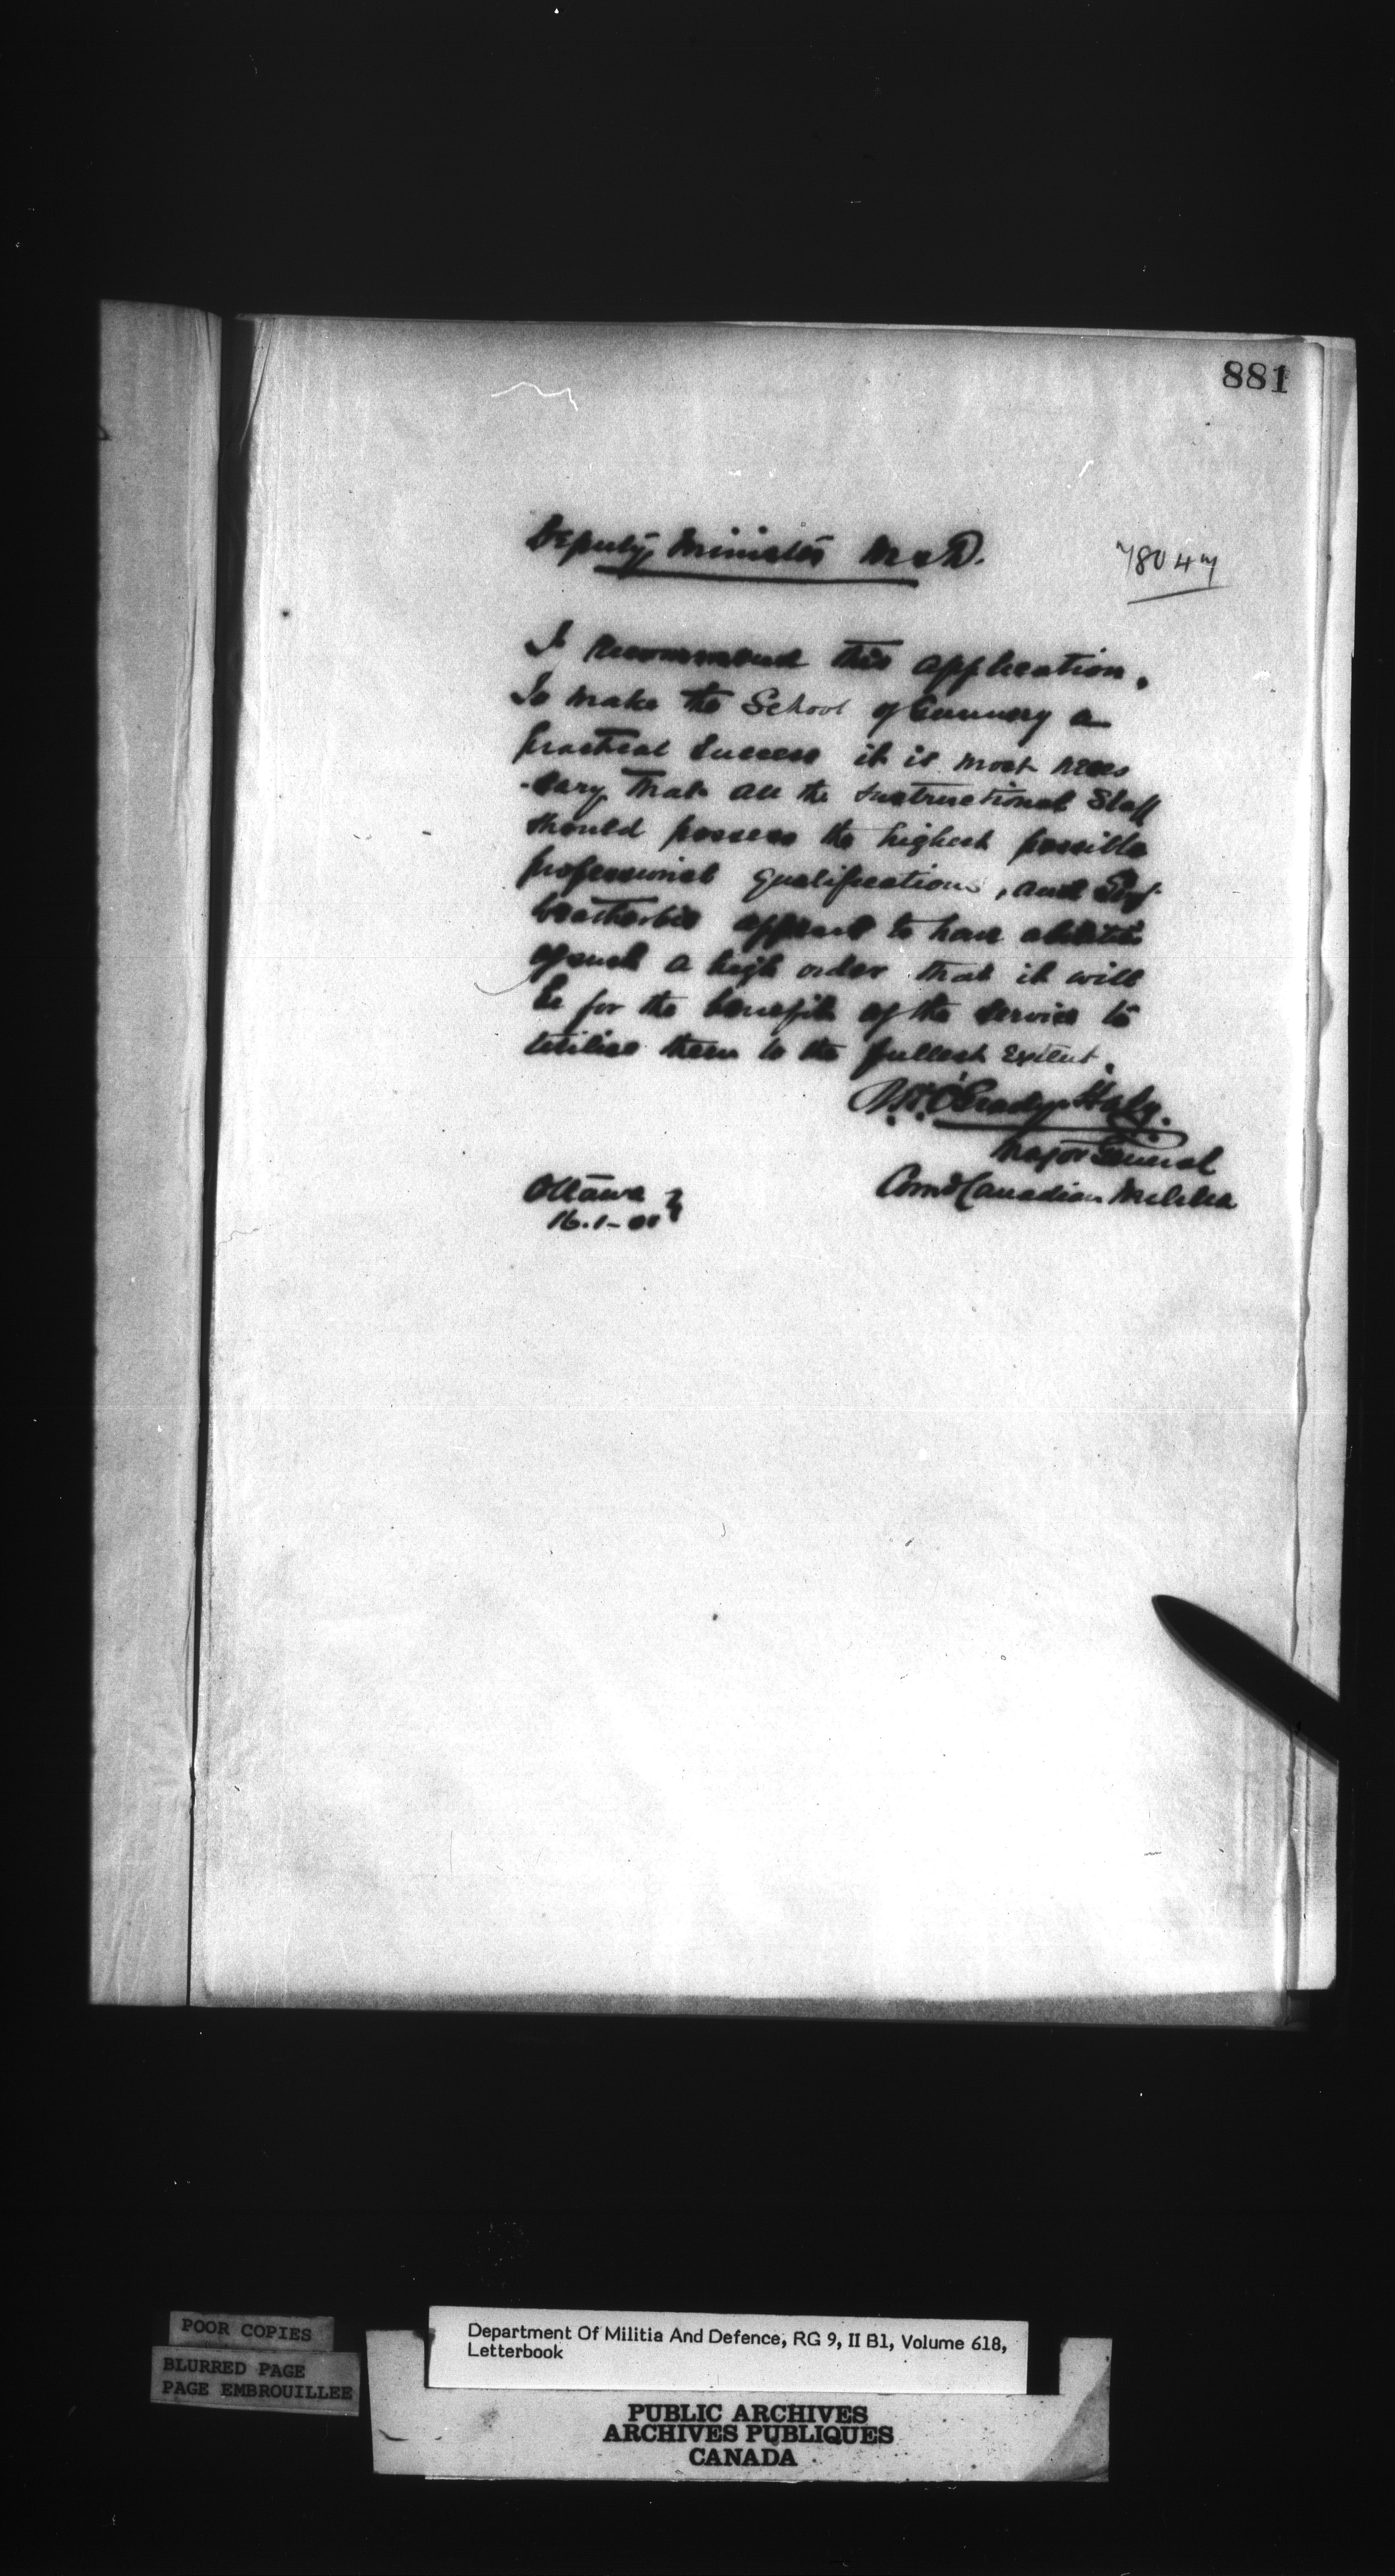 881
Deputy Minister M & D.
78047
I recommend this application.
To make the School of Gunnery a
practical success it is most neces
-sary that all the Instructional Staff
should possess the highest possible
professional qualifications, and
Weatherbie appears to have abilities
of such a high order that it will
be for the benefit of the service to
utilise them to the fullest extent.
O'Grady Haly.
Major General
Comdg Canadian Militia
Ottawa
16.1-01
POOR COPIES
BLURRED PAGE
PAGE EMBROUILLEE
Department Of Militia And Defence, RG 9, II B1, Volume 618,
Letterbook
PUBLIC ARCHIVES
ARCHIVES PUBLIQUES
CANADA